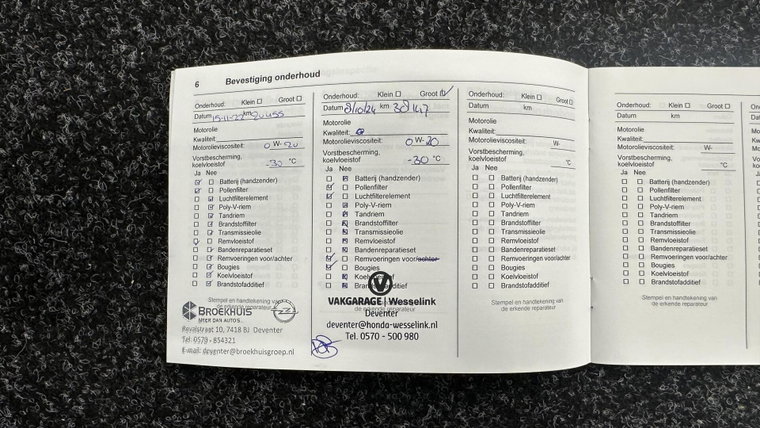 6 Bevestiging onderhoud
Onderhoud: Klein Groot
Datum 15-11-22 km
Motorolie
Kwaliteit:
Motorolieviscositeit: 0 W- 20
Vorstbescherming,
koelvloeistof -30 °C
Ja Nee
Batterij (handzender)
Pollenfilter
Luchtfilterelement
Poly-V-riem
Tandriem
Brandstoffilter
Transmissieolie
Remvloeistof
Bandenreparatieset
Remvoeringen voor/achter
Bougies
Koelvloeistof
Brandstofadditief
Stempel en handtekening van
de erkende reparateur
BROEKHUIS
MEER DAN AUTO'S.
Revalstraat 10, 7418 BJ Deventer
Tel: 0570 - 854321
E-mail: deventer@broekhuisgroep.nl
Onderhoud: Klein Groot
Datum km
Motorolie
Kwaliteit:
Motorolieviscositeit: 0 W- 20
Vorstbescherming,
koelvloeistof -30 °C
Ja Nee
Batterij (handzender)
Pollenfilter
Luchtfilterelement
Poly-V-riem
Tandriem
Brandstoffilter
Transmissieolie
Remvloeistof
Bandenreparatieset
Remvoeringen voor/achter
Bougies
VAKGARAGE | Wesselink
Deventer
deventer@honda-wesselink.nl
Tel. 0570 - 500 980
Onderhoud: Klein Groot
Datum km
Motorolie
Kwaliteit:
Motorolieviscositeit: W-
Vorstbescherming,
koelvloeistof °C
Ja Nee
Batterij (handzender)
Pollenfilter
Luchtfilterelement
Poly-V-riem
Tandriem
Brandstoffilter
Transmissieolie
Remvloeistof
Bandenreparatieset
Remvoeringen voor/achter
Bougies
Koelvloeistof
Brandstofadditief
Stempel en handtekening van
de erkende reparateur
Onderhoud: Klein Groot
Datum km
Motorolie
Kwaliteit:
Motorolieviscositeit: W-
Vorstbescherming,
koelvloeistof °C
Ja Nee
Batterij (handzender)
Pollenfilter
Luchtfilterelement
Poly-V-riem
Tandriem
Brandstoffilter
Transmissieolie
Remvloeistof
Bandenreparatieset
Remvoeringen voor/achter
Bougies
Koelvloeistof
Brandstofadditief
Stempel en handtekening van
de erkende reparateur